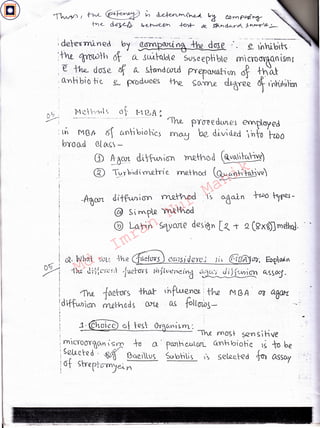 Thus, the (potency) is determined by comparing
the doses between test & standard samples.
determined by comparing the dose & inhibits
the growth of a suitable susceptible microorganisms
c̄ the dose of a standard preparation of that
antibiotic & produces the same degree of inhibition
05. Methods of MBA:
The procedures employed
in MBA of antibiotics may be divided into two
broad class-
① Agar diffusion method (Qualitative)
② Turbidimetric method (Quantitative)
-Agar diffusion method is again two types-
ⓐ Simple method
ⓑ Latin Square design [2 + 2 (8x8)] method.
05 Q. What are the (factors) considered in (MBA)? or, Explain
the different factors influencing agar diffusion assay.
The factors that influence the MBA or agar
diffusion methods are as follows-
1. (Choice) of test Organism:
The most sensitive
microorganism to a particular antibiotic is to be
selected. Eg Bacillus Subtilis is selected for assay
of streptomycin
Md. Imran Nur Manik